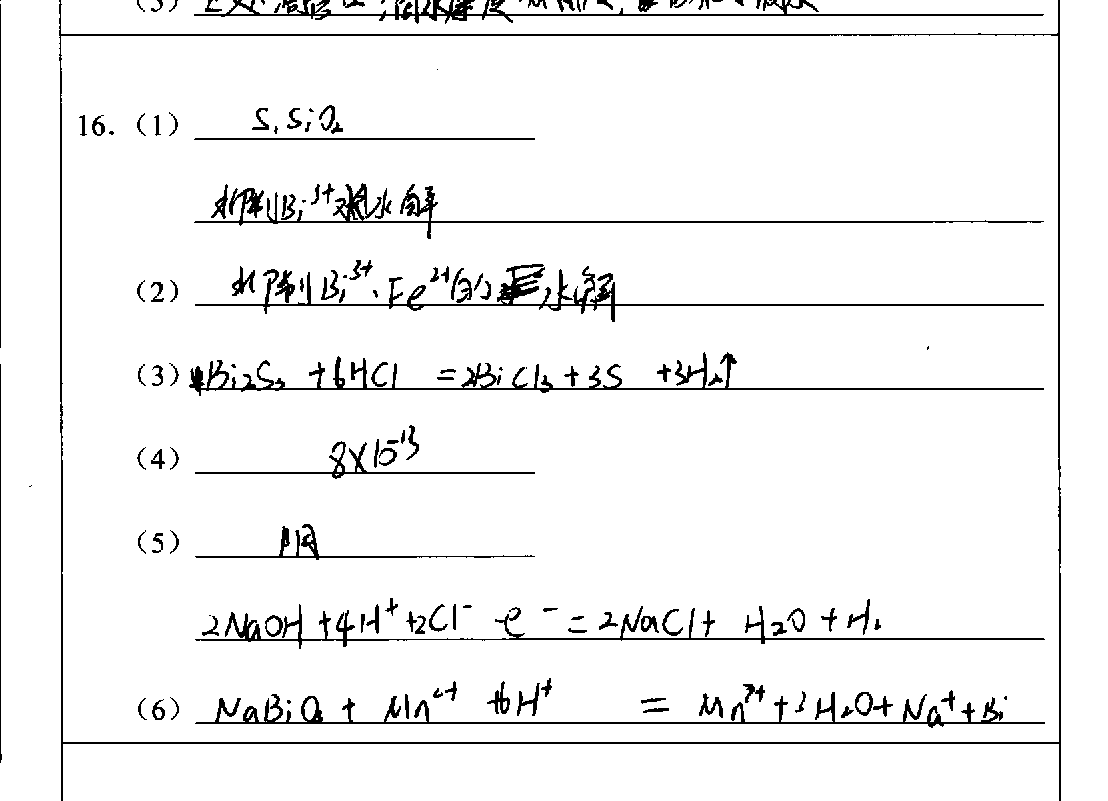 (3)
16. (1) S, SiO₂
抑制Bi³⁺水解
(2) 抑制Bi³⁺、Fe²⁺的水解
(3) Bi₂S₃ + 6HCl = 2BiCl₃ + 3S + 3H₂↑
(4) 8×10⁻¹³
(5) 阴
2NaOH + 4H⁺ + 2Cl⁻ - e⁻ = 2NaCl + H₂O + H₂
(6) NaBiO₃ + Mn²⁺ + 6H⁺ = Mn⁷⁺ + 3H₂O + Na⁺ + Bi